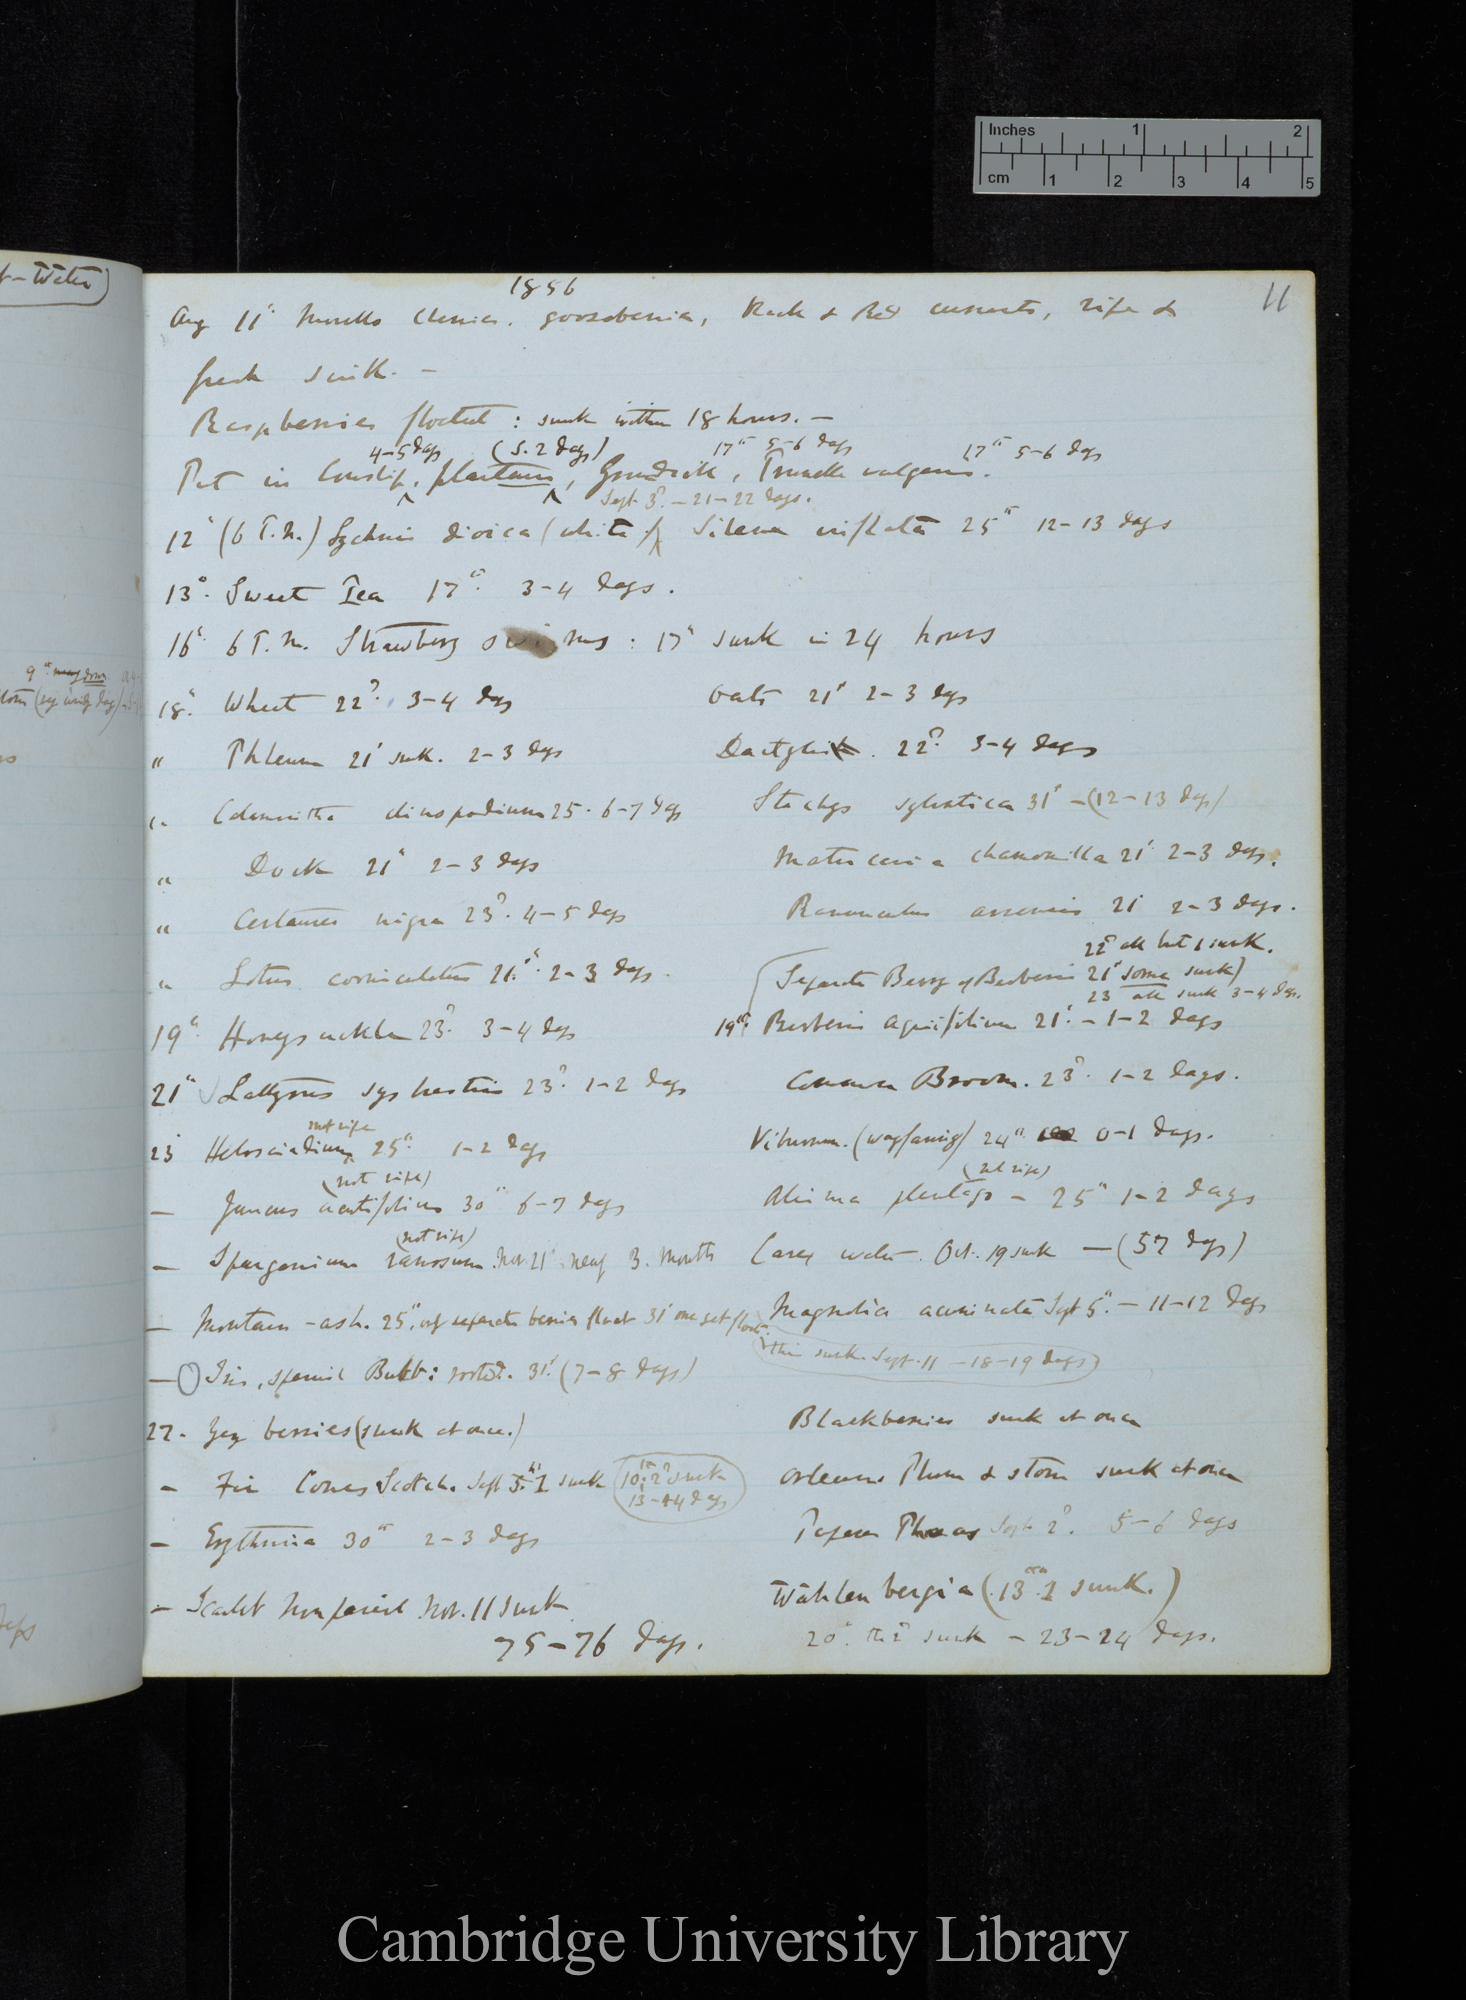 Inches 1 2
cm 1 2 3 4 5
t-Water)
1856
11
Aug 11th Morello Cherries. gooseberries, Black & Red currants, ripe &
fresh sunk. —
Raspberries floated : sunk within 18 hours. —
4-5 days (S. 2 days) 17th 5-6 days 17th 5-6 days
Put in Cowslip, plantain, Groundsel, Prunella vulgaris.
Sept 3d. — 21-22 days.
12th (6 P.M.) Lychnis dioica (white) Silene inflata 25th 12-13 days
13th. Sweet Pea 17th. 3-4 days.
16th. 6 P.M. Strawberry swims : 17th sunk in 24 hours
18th. Wheat 22d. 3-4 days Oats 21st 2-3 days
" Phleum 21st sunk. 2-3 days Dactylis. 22d. 3-4 days
" Calamintha clinopodium 25. 6-7 days Stachys sylvatica 31st — (12-13 days)
" Dock 21st 2-3 days Matricaria chamomilla 21st 2-3 days.
" Centaurea nigra 23d. 4-5 days Ranunculus arvensis 21 2-3 days.
22d all but 1 sunk.
" Lotus corniculatus 21st. 2-3 days. Separate Berry of Berberis 21st some sunk)
23 all sunk 3-4 days.
19th. Honeysuckle 23d. 3-4 days 19th. Berberis aquifolium 21st. — 1-2 days
21st Lathyrus sylvestris 23d. 1-2 days Common Broom. 23d. 1-2 days.
not ripe
23 Helosciadium 25th. 1-2 days Viburnum. (wayfaring) 24th 0-1 days.
(not ripe) (not ripe)
— Juncus acutifolius 30th 6-7 days Alisma plantago — 25th 1-2 days
(not ripe)
— Sparganium ramosum. Nov. 21st nearly 3. Months Carex water. Oct. 19 sunk — (57 days)
— Mountain-ash. 25th. separate berries float 31st one yet floats. Magnolia acuminata Sept 5th. — 11-12 days
this sunk. Sept. 11 — 18-19 days)
— Iris, spanish Bulb: rooted. 31st. (7-8 days)
27. Yew berries (sunk at once.) Blackberries sunk at once
— Fir Cones Scotch. Sept 5th. 1 sunk 10th. 2d sunk Orleans Plum & stone sunk at once
13-14 days
— Erythrina 30th 2-3 days Papaver Sept 2d. 5-6 days
— Scarlet Nonpareil Nov. 11 sunk Wahlenbergia (13th. 1 sunk.)
75-76 days. 20th. the 2d sunk — 23-24 days.
Cambridge University Library